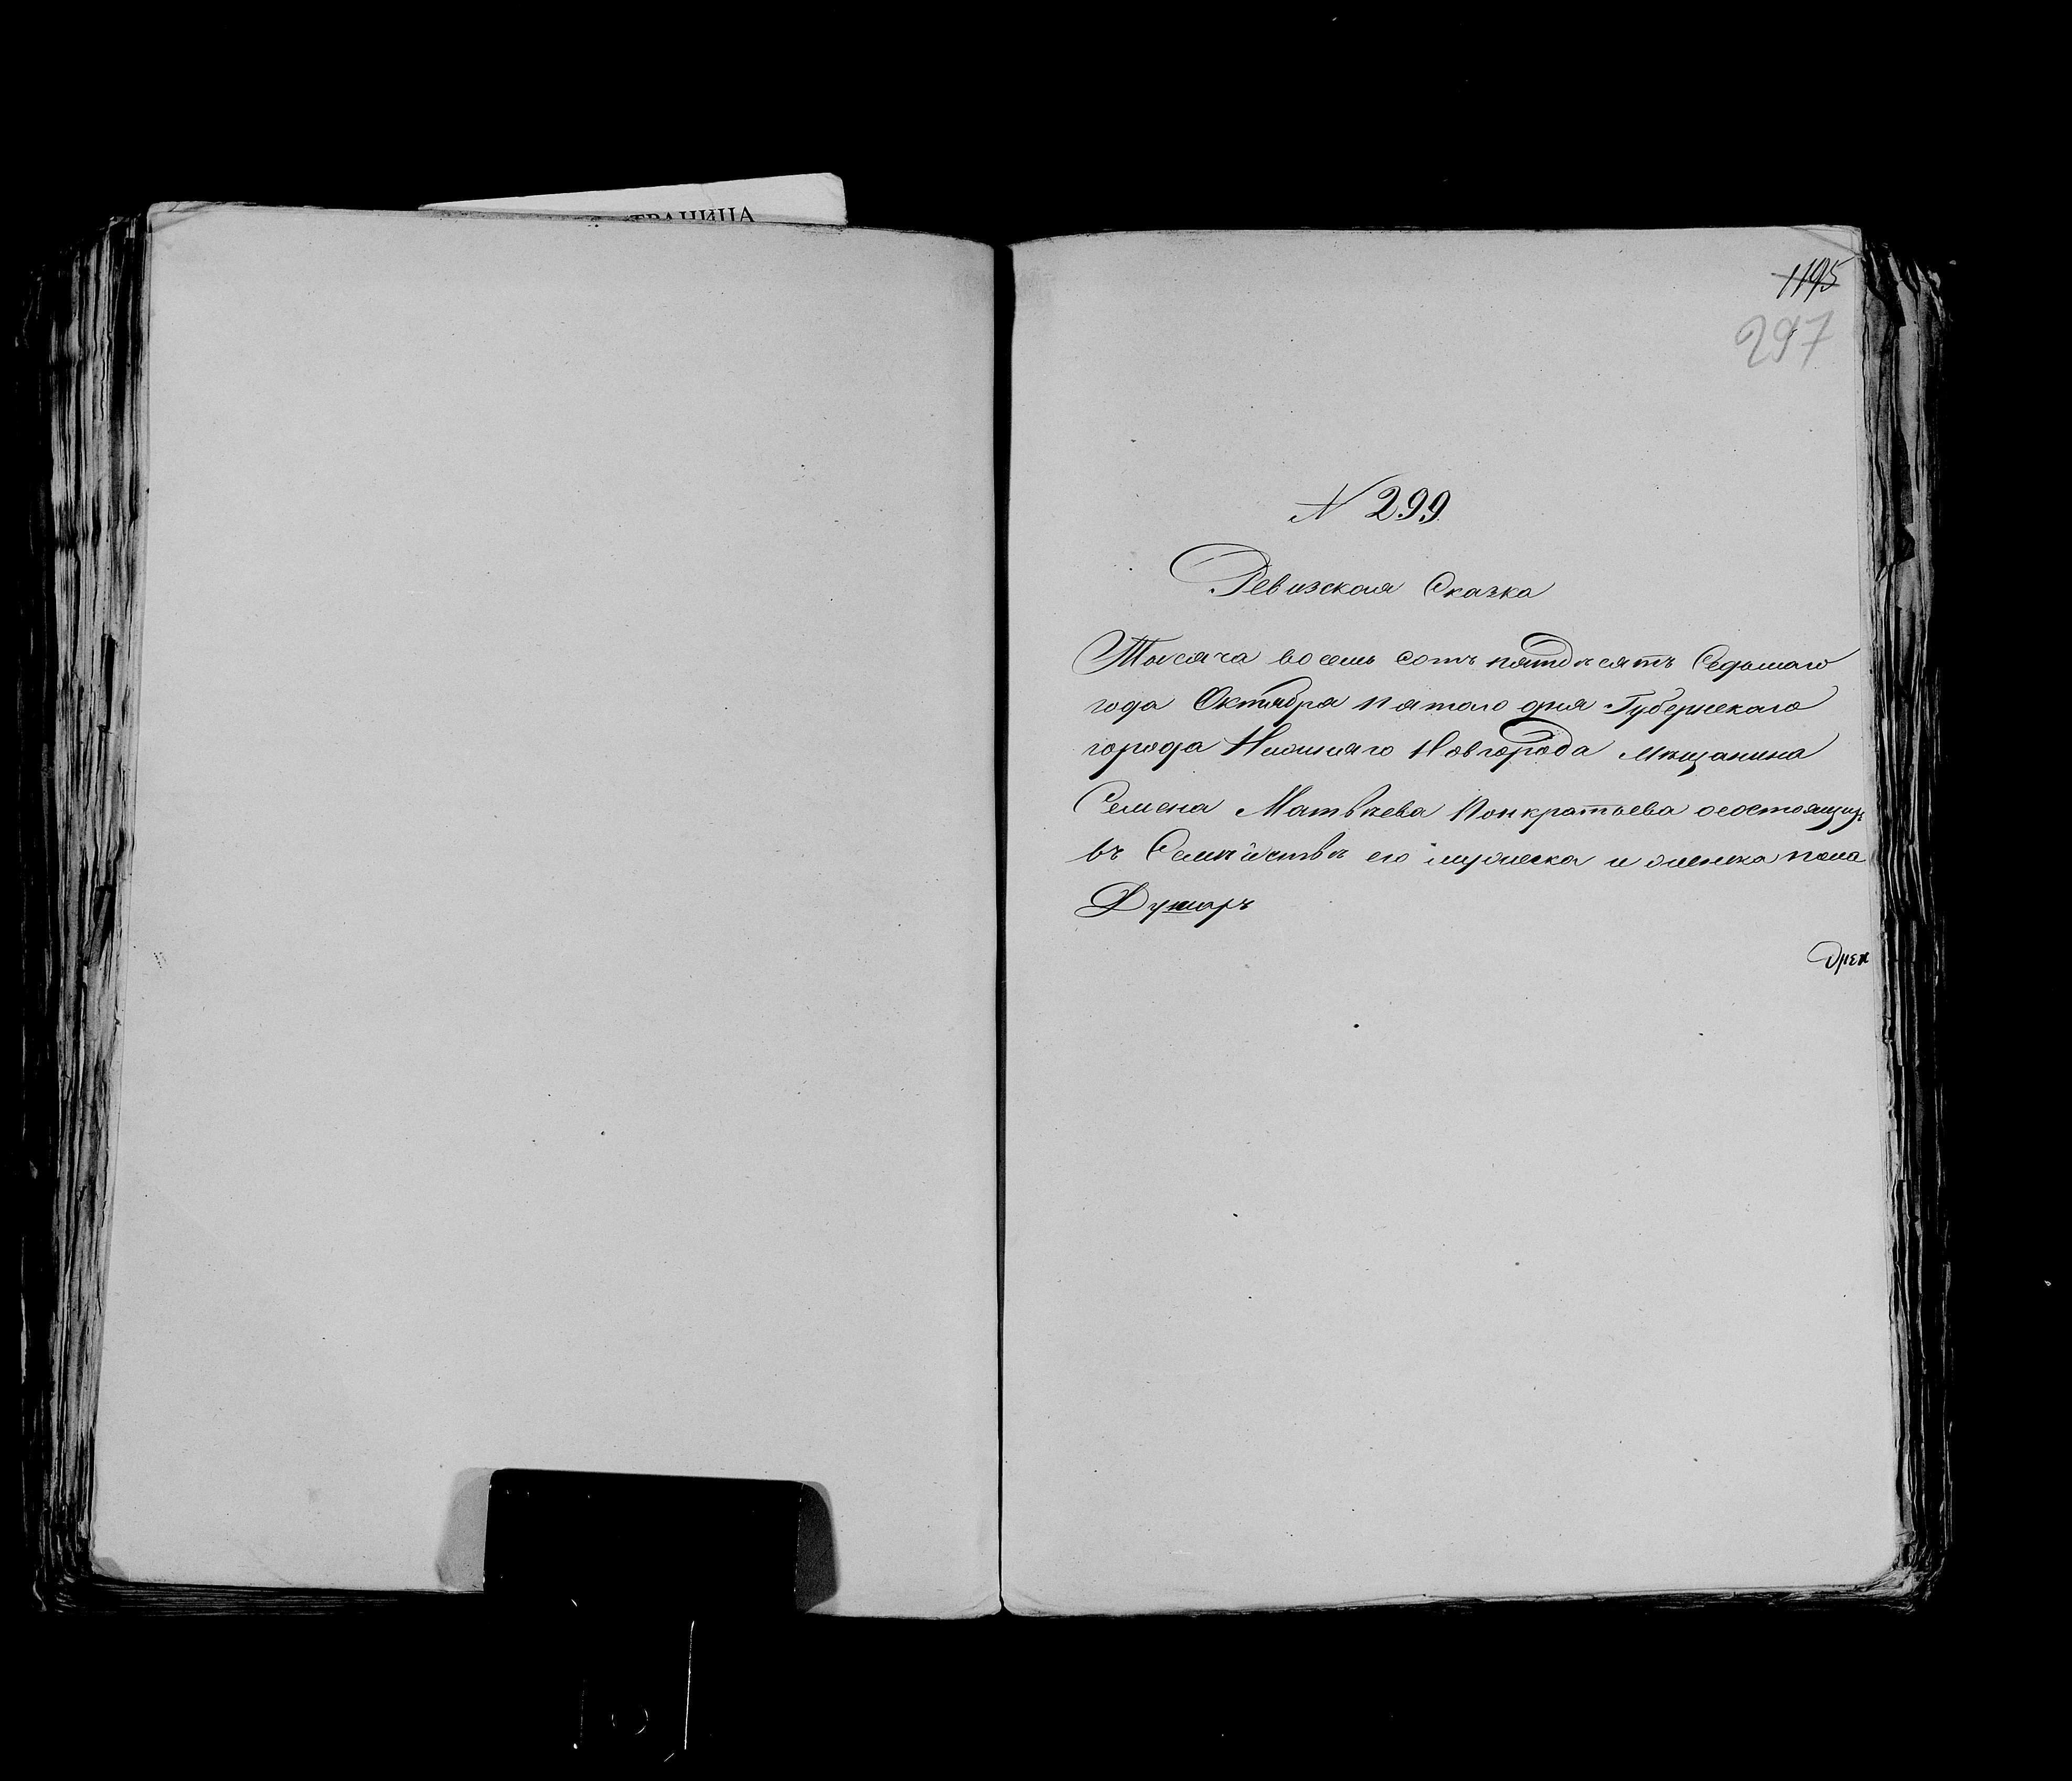 ТРАНИЦА
1195
297
N 299
Ревизская Сказка
Тысяча восемь сотъ пятдесятъ Седьмаго
года Октября пятаго дня Губернскаго
города Нижняго Новгорода мѣщанина
Семена Матвѣева Понкратьева осостоящихъ
въ Семѣйствѣ его мужеска и женска пола
Душахъ